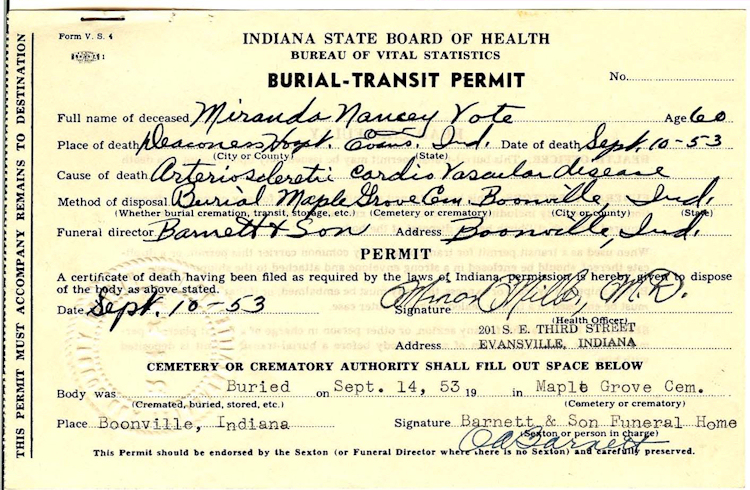 Form V. S. 4
INDIANA STATE BOARD OF HEALTH
BUREAU OF VITAL STATISTICS
BURIAL-TRANSIT PERMIT
No.
Full name of deceased Miranda Nancy Vote Age 60
Place of death Deaconess Hospt. Evans. Ind. Date of death Sept. 10-53
(City or County) (State)
Cause of death Arteriosclerotic Cardio Vascular disease
Method of disposal Burial Maple Grove Cem. Boonville, Ind.
(Whether burial cremation, transit, storage, etc.) (Cemetery or crematory) (City or county) (State)
Funeral director Barnett & Son Address Boonville, Ind.
PERMIT
A certificate of death having been filed as required by the laws of Indiana, permission is hereby given to dispose
of the body as above stated.
Date Sept. 10-53 Signature Minor Miller, M.D.
(Health Officer)
201 S. E. THIRD STREET
Address EVANSVILLE, INDIANA
CEMETERY OR CREMATORY AUTHORITY SHALL FILL OUT SPACE BELOW
Body was Buried on Sept. 14, 53 19 in Maple Grove Cem.
(Cremated, buried, stored, etc.) (Cemetery or crematory)
Place Boonville, Indiana Signature Barnett & Son Funeral Home
(Sexton or person in charge)
Barnett
This Permit should be endorsed by the Sexton (or Funeral Director where there is no Sexton) and carefully preserved.
THIS PERMIT MUST ACCOMPANY REMAINS TO DESTINATION